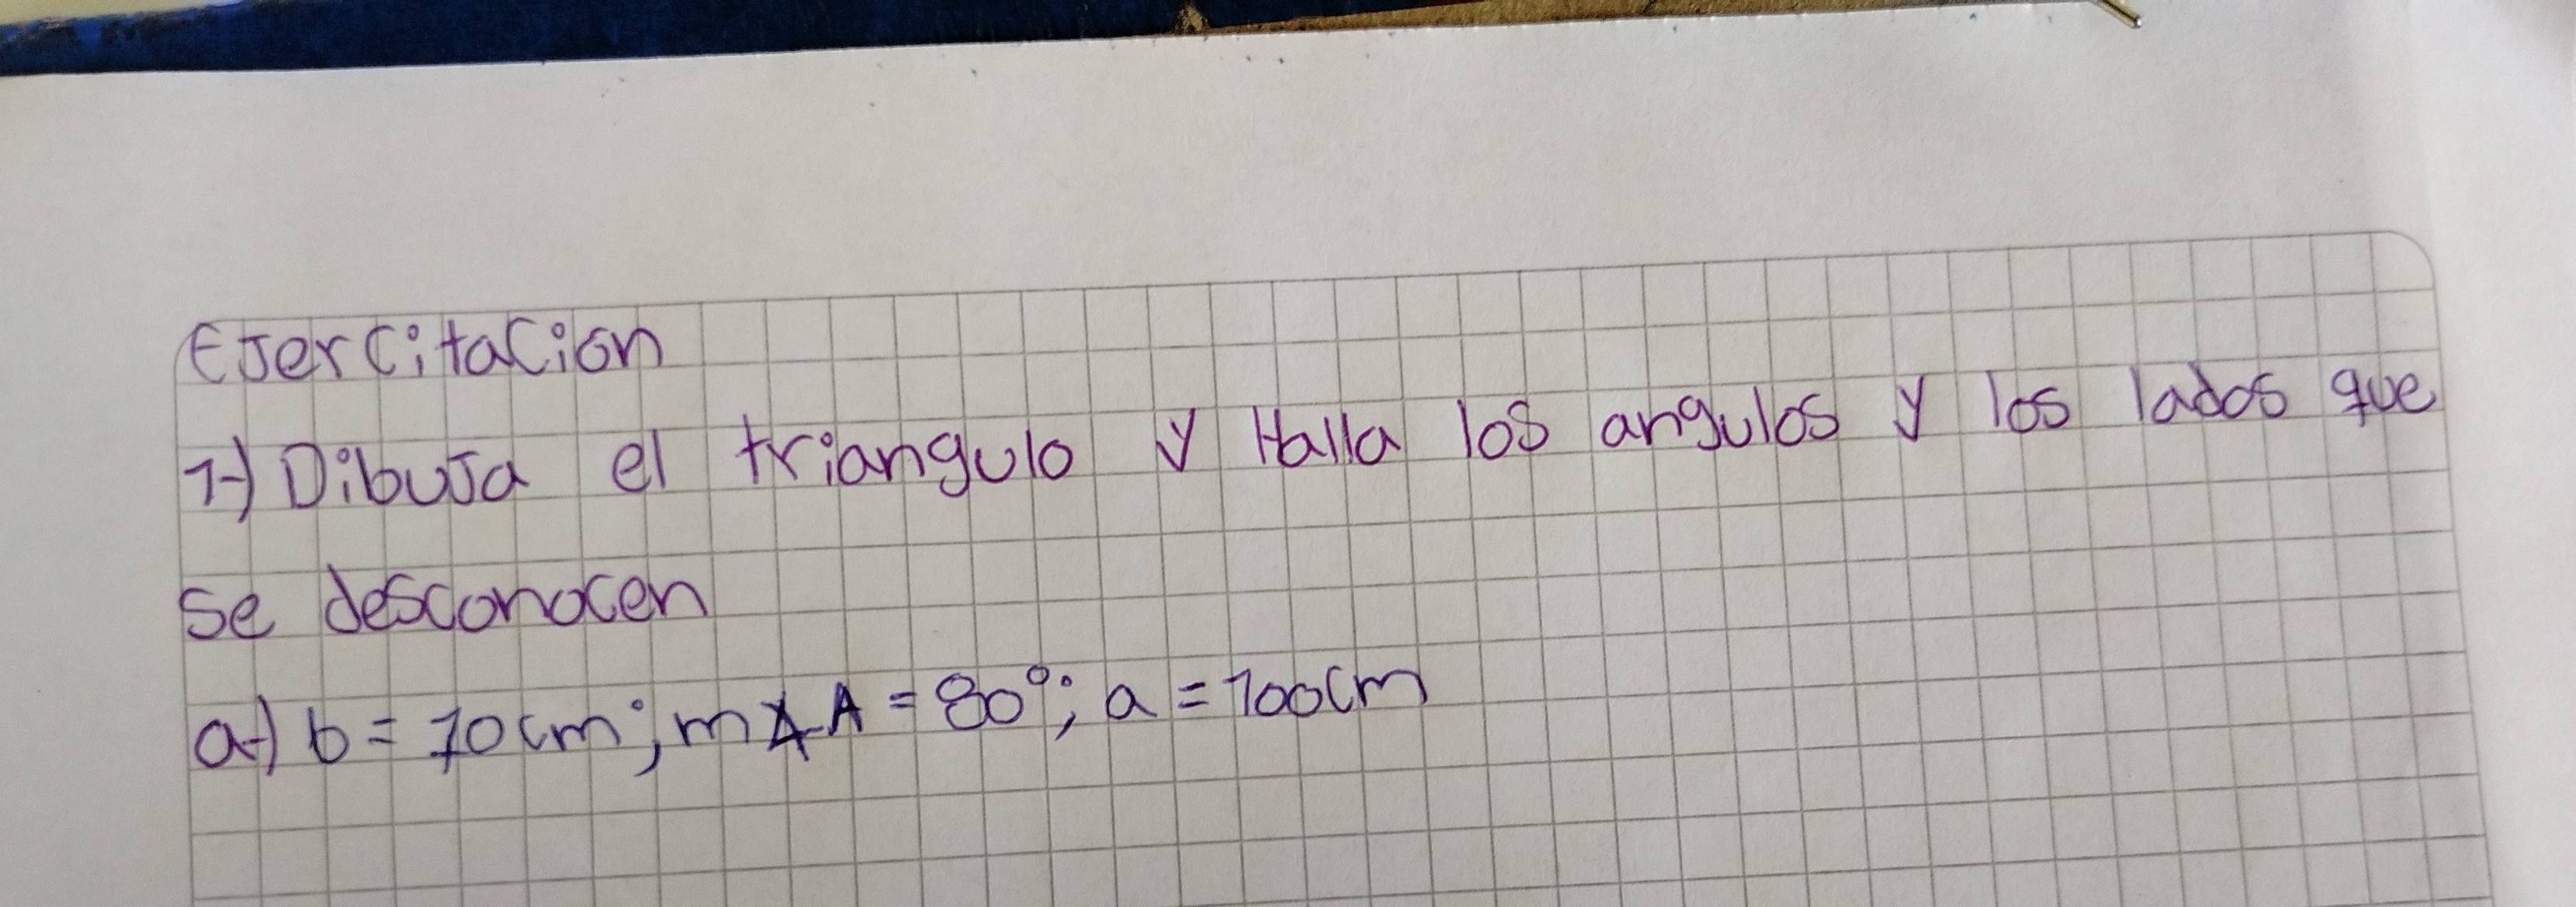 Ejercitacion
1-) Dibuja el triangulo y Halla los angulos y los lados que
se desconocen
a-) b = 70cm; m∡A = 80°; a = 100cm